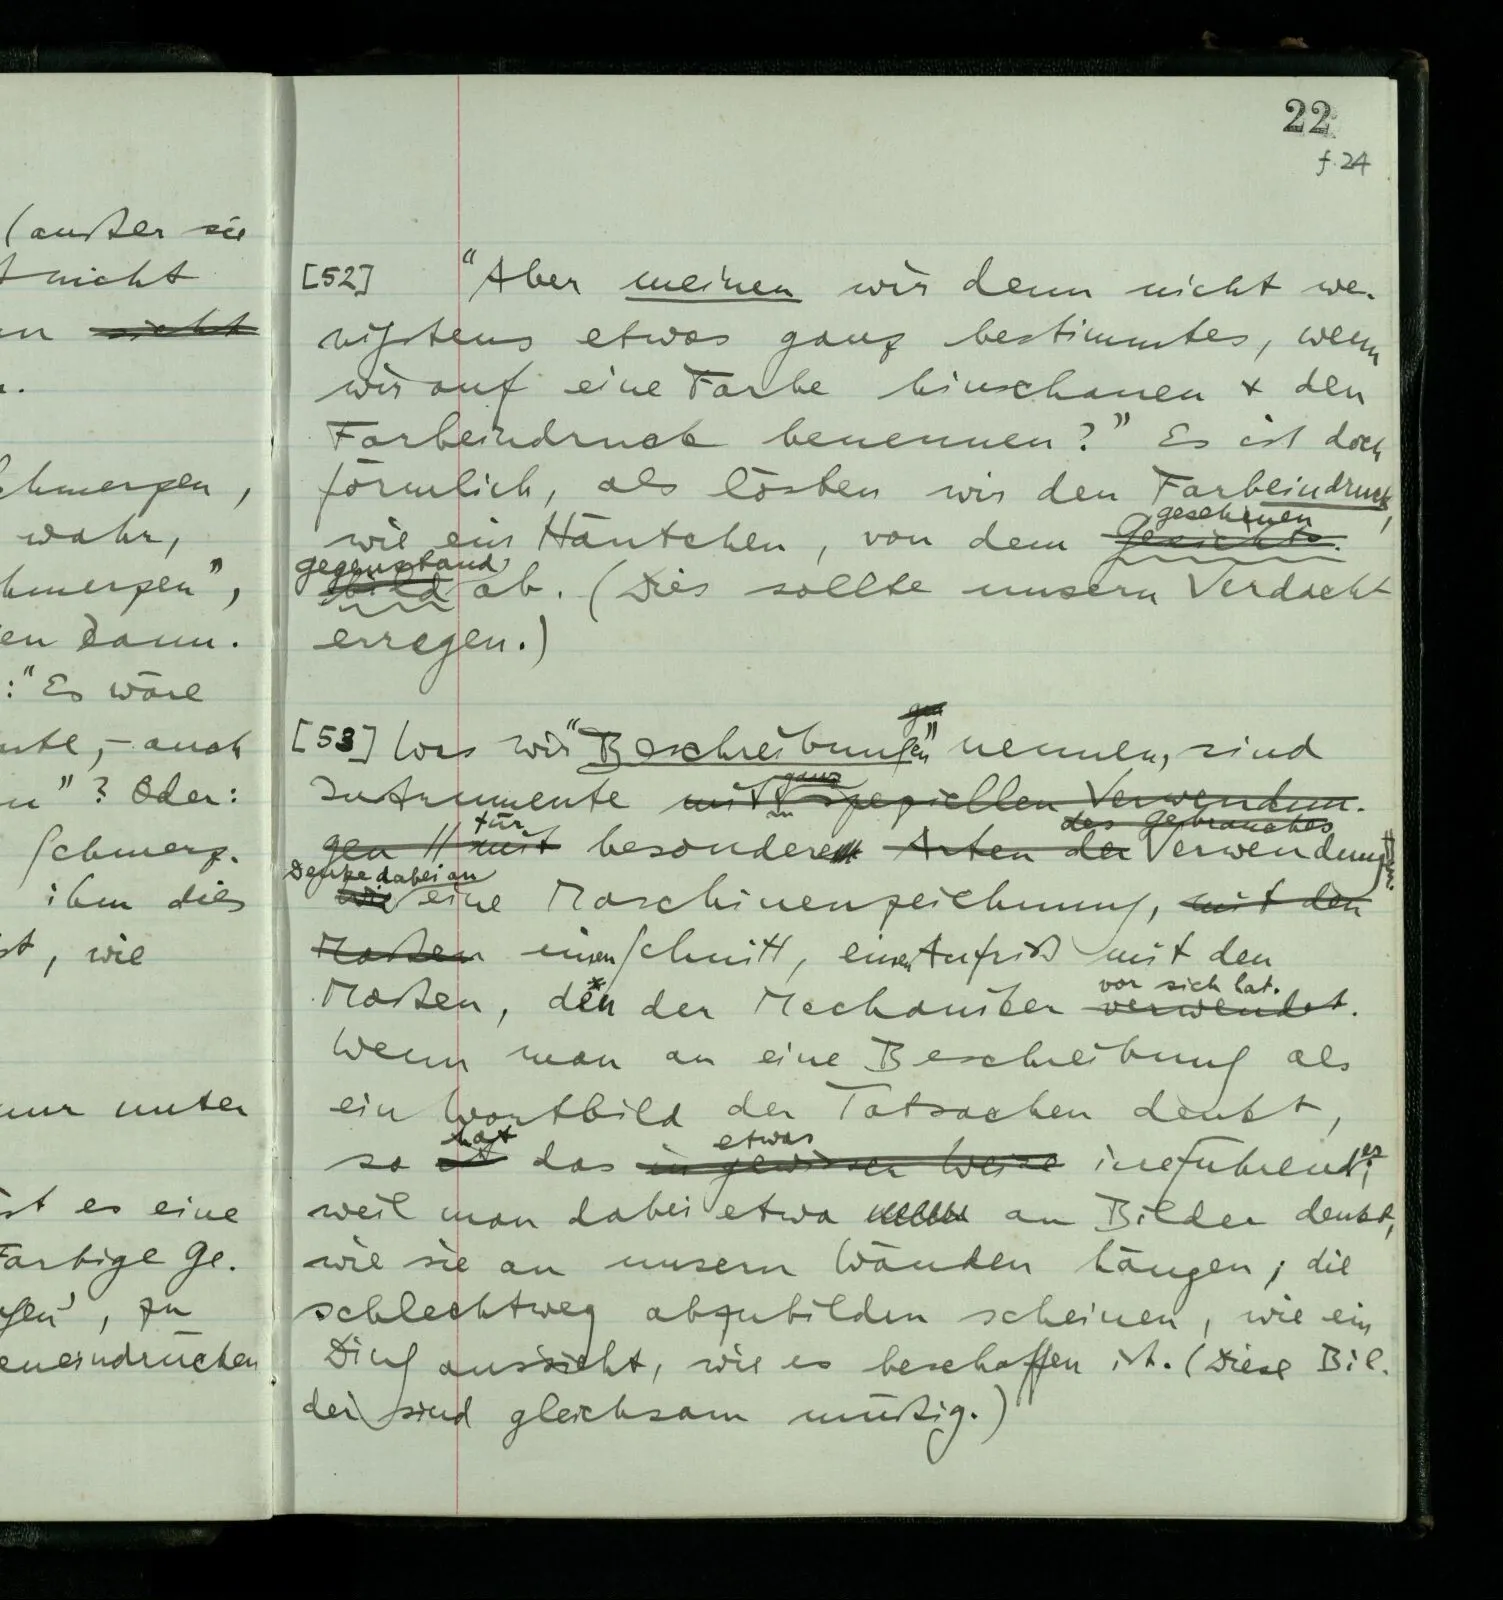 22
f. 24
(außer sie
nicht
n nicht
n.
chmerzen,
wahr,
hmerzen",
en dann.
: "Es wäre
nte, – auch
n"? Oder:
Schmerz.
ihm dies
st, wie
nur unter
st es eine
Farbige Ge-
gen', zu
eneindrücken
[52] "Aber meinen wir denn nicht we-
nigstens etwas ganz bestimmtes, wenn
wir auf eine Farbe hinschauen & den
Farbeindruck benennen?" Es ist doch
förmlich, als lösten wir den Farbeindruck,
gesehenen
wie ein Häutchen, von dem Gesichts-
gegenstand
bild ab. (Dies sollte unsern Verdacht
erregen.)
gen
[53] Was wir "Beschreibungen" nennen, sind
ganz
Instrumente mit speziellen Verwendun-
für des Gebrauches
gen // mit besondere Arten der Verwendungen.
Denke dabei an
wie eine Maschinenzeichnung, mit den
Maßen einen Schnitt, einen Aufriß mit den
vor sich hat.
Maßen, den der Mechaniker verwendet.
Wenn man an eine Beschreibung als
ein Wortbild der Tatsachen denkt,
hat etwas
so ist das in gewisser Weise irreführendes;
weil man dabei etwa an Bilder denkt,
wie sie an unsern Wänden hängen; die
schlechtweg abzubilden scheinen, wie ein
Ding aussieht, wie es beschaffen ist. (Diese Bil-
der sind gleichsam müßig.)